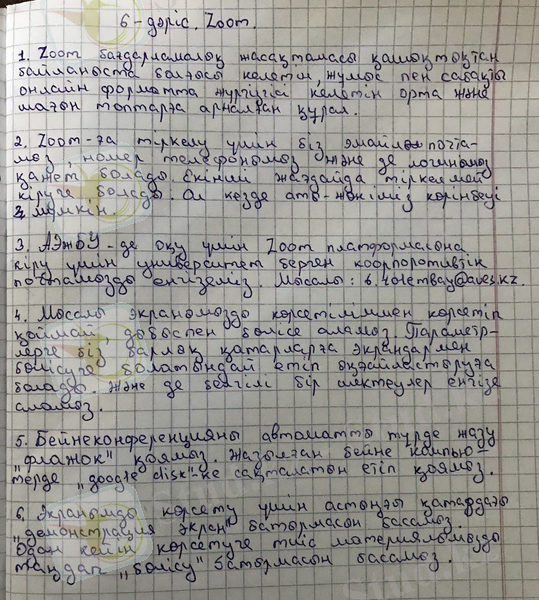 6-дәріс. Zoom.
1. Zoom бағдарламалық жасақтамасы қашықтықтан
байланыста болғысы келетін, жұмыс пен сабақты
онлайн форматта жүргізгісі келетін орта және
шағын топтарға арналған құрал.
2. Zoom-ға тіркелу үшін біз эмайл почта-
мыз, номер телефонымыз және де логинымыз
қажет болады. Екінші жағдайда тіркелмей
кіруге болады. Ол кезде аты-жөніміз көрінбеуі
мүмкін.
3. АЭжБУ-де оқу үшін Zoom платформасына
кіру үшін университет берген коорпоротивтік
почтамызды енгіземіз. Мысалы:
4. Мысалы экранымызды көрсетіліммен көрсетіп
қоймай, дыбыспен бөлісе аламыз. Параметр-
лерге біз барлық қатарларға экрандармен
бөлісуге болатындай етіп ыңғайластыруға
болады. Және де белгілі бір шектеулер енгізе
аламыз.
5. Бейнеконференцияны автоматты түрде жазу
"флажок" қоямыз. Жазылған бейне компью-
терде "google disk"-ке сақталатын етіп қоямыз.
6. Экранымды көрсету үшін астыңғы қатардағы
"демонстрация экран" батырмасын басамыз.
Одан кейін көрсетуге тиіс материялымызды
таңдап "бөлісу" батырмасын басамыз.